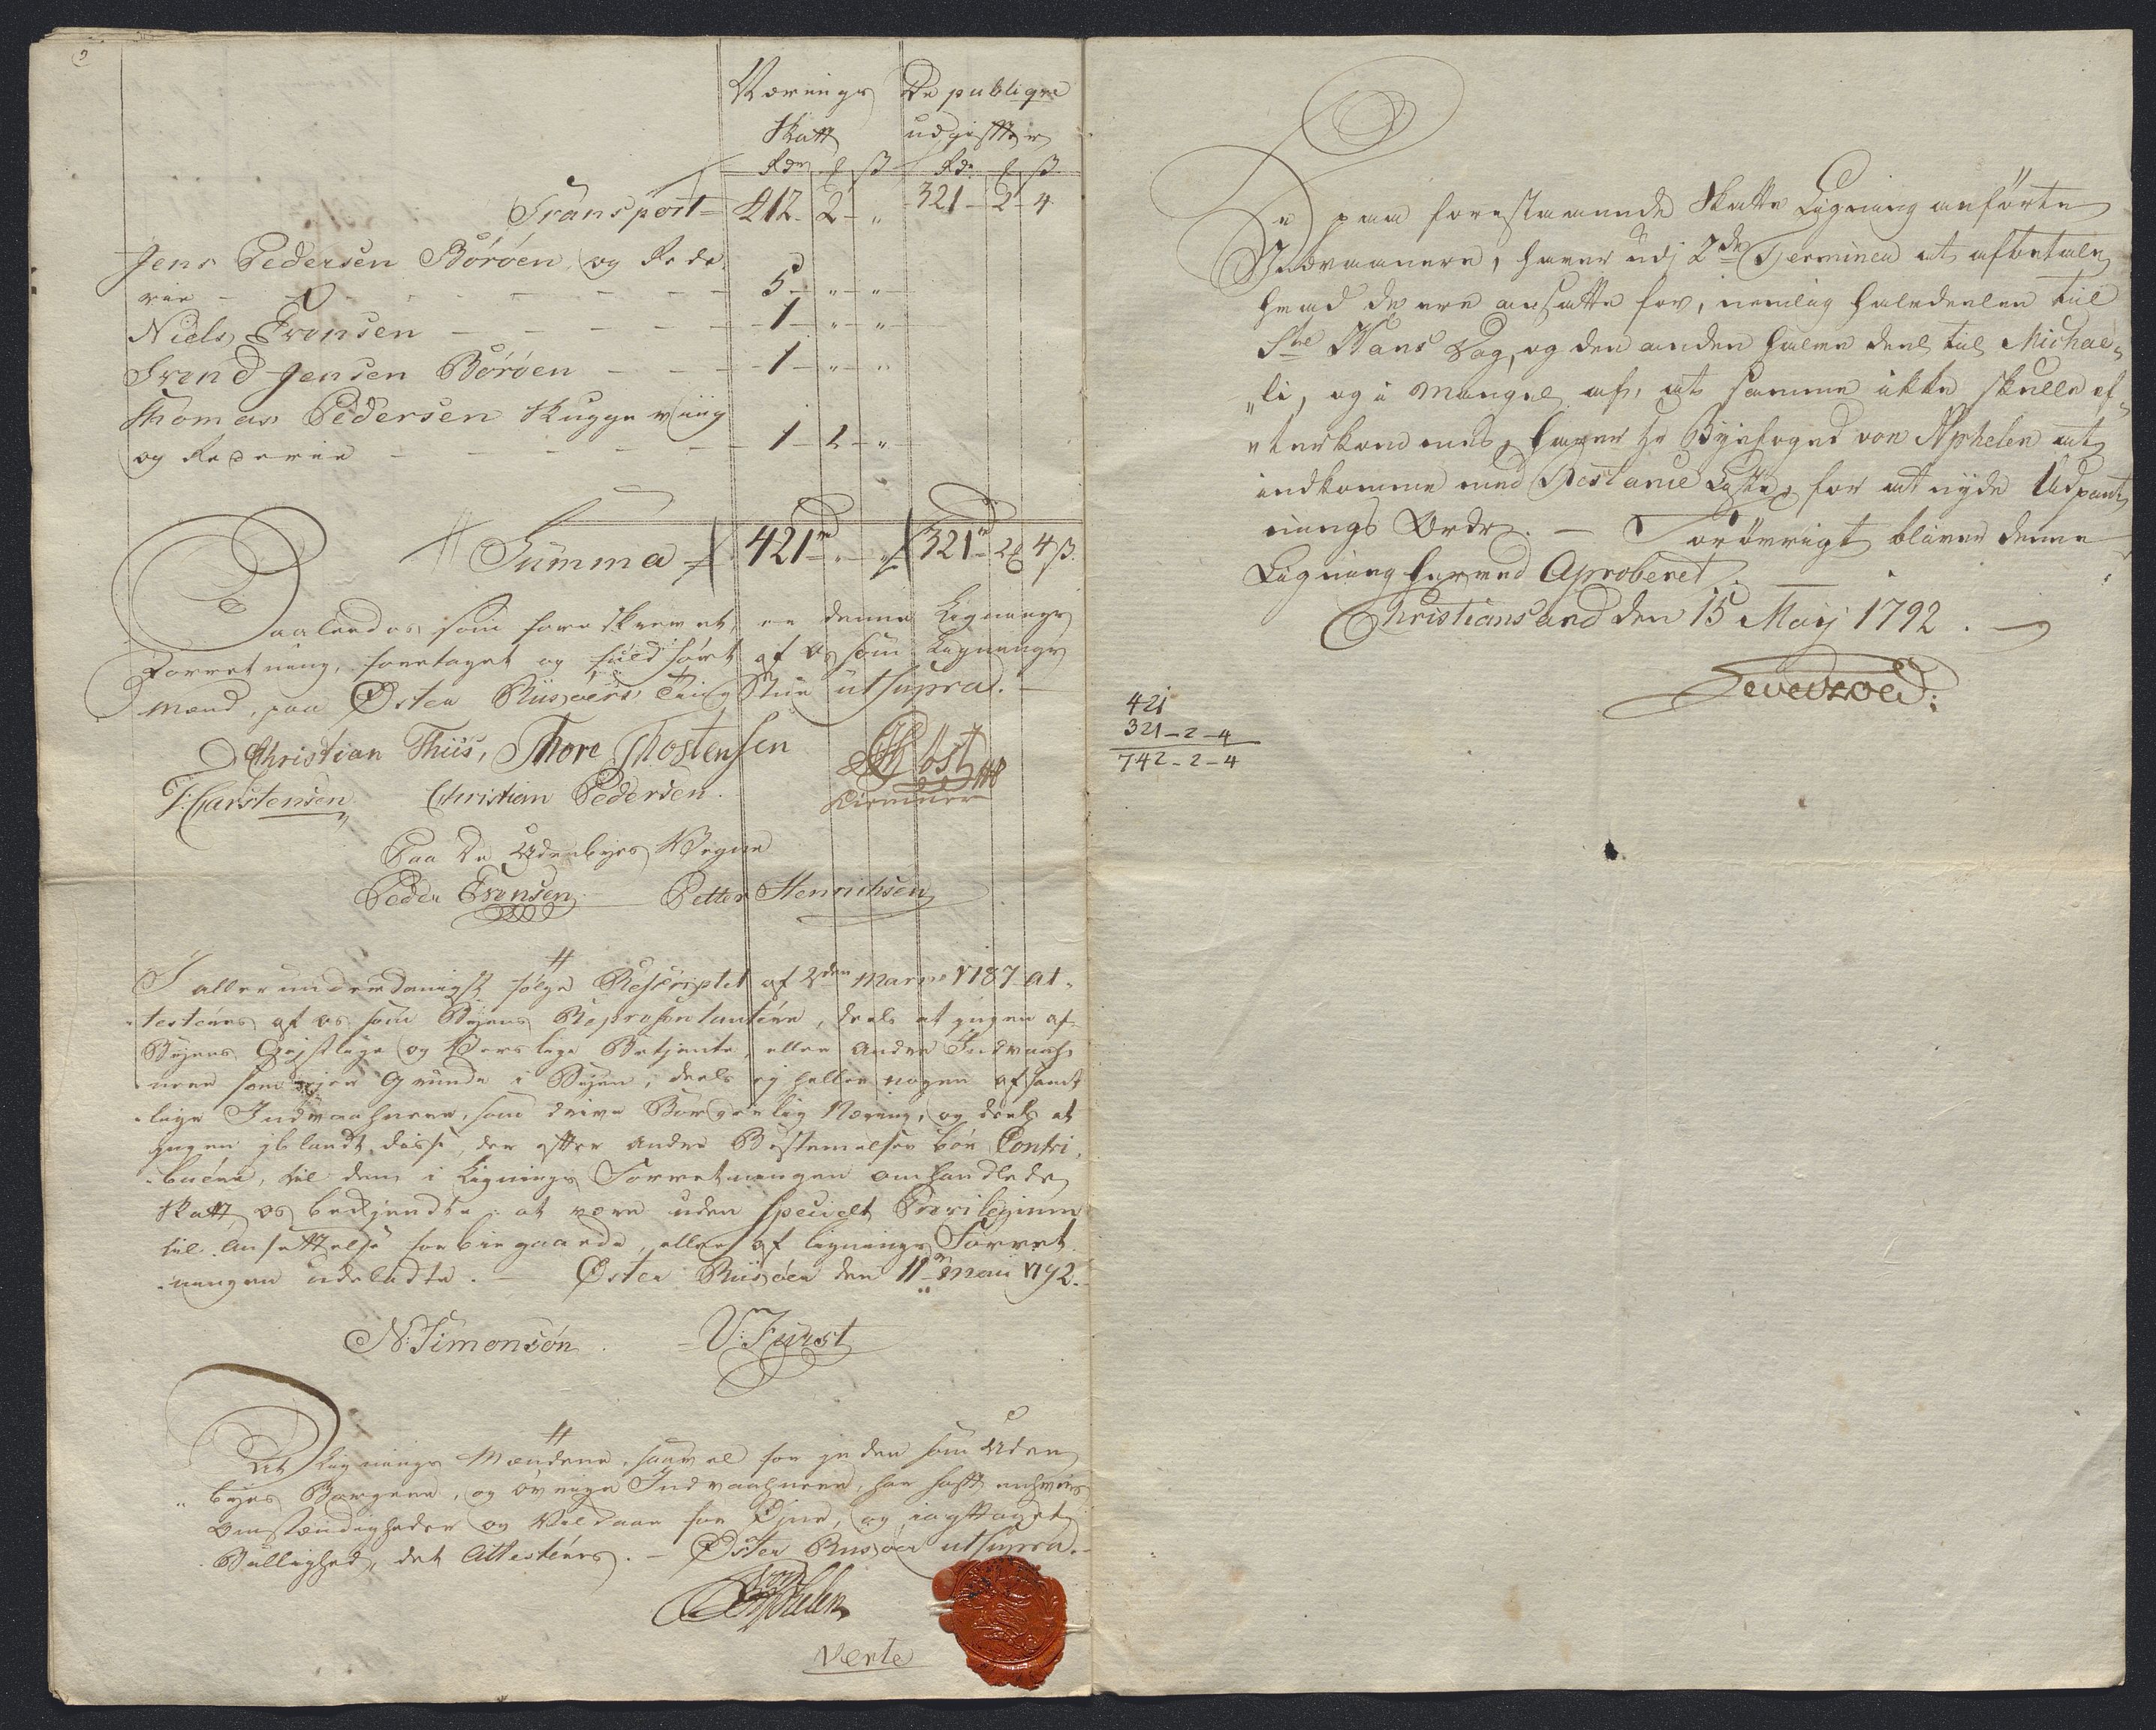 Nærings De publiqve
Skatt udgiffter
Rdr ß Rdr ß
Transport 412 2 " 321 2 4
Jens Pedersen Böröen og Rede
rie 5 " "
Niels Tronsen 1 " "
Trond Jensen Böröen 1 " "
Thomas Pedersen Skuggeviig
og Rederie 1 2 "
Summa 421 rd " " 321 rd 2 4 ß
Saaledes som foreskrevet, er denne Lignings
Forretning, foretaget og fuldført af os som Lignings
Mænd, paa Öster Riisöers Ting Stue ut supra.
Christian Thiis, Thore Thostensen
T: Carstensen Christian Pedersen
Paa De Udenbyes Vegne
Peder Tronsen Petter Henrichsen
I allerunderdanigst fölge Rescriptet af Marts 1787 at-
testeres af os som Byens Repræsentantere, deels at ingen af
Byens Geistlige og Verslige Betjente, eller andre Indvaah-
nere som ejer Grunde i Byen, deels ej heller nogen af samt-
lige Indvaahnere, som drive Borgerlig Næring, og deels at
ingen iblandt disse, der efter andre Bestemelser bör Contri-
buere, til den i Lignings Forretningen omhandlede
Skatt, os bekjendte at være uden specielt Privilegium
til Ansettelse forbiegaaede, eller af lignings Forret-
ningen udeladte. - Öster Riisöer den 11 Maii 1792.
N: Simonsön. U: Furst
At Lignings Mændene, saavel for inden som Uden
byes Borgere, og övrige Indvaahnere, har hafft enhvers
Omstændigheder og Vilkaar for Öjne, og iagttaget
Billighed, det Attesteres. - Öster Riisöer ut supra.
von Aphelen
Verte
De paa forestaaende Skatte Ligning anförte
Indvaanere, haver udj 2de Terminer at afbetale,
hvad de ere ansatte for, nemlig halvdeelen til
Ste Hans Dag, og den anden halve deel til Michae-
"li, og i Mangel af, at samme ikke skulle ef-
"terkommes, haver Hr Byefoged von Aphelen at
indkomme med Restance Liste, for at nyde Udpant-
nings Ordre. - Forövrigt bliver denne
Ligning herved Aproberet.
Christiansand den 15 Maij 1792.
421
321 - 2 - 4
742 - 2 - 4